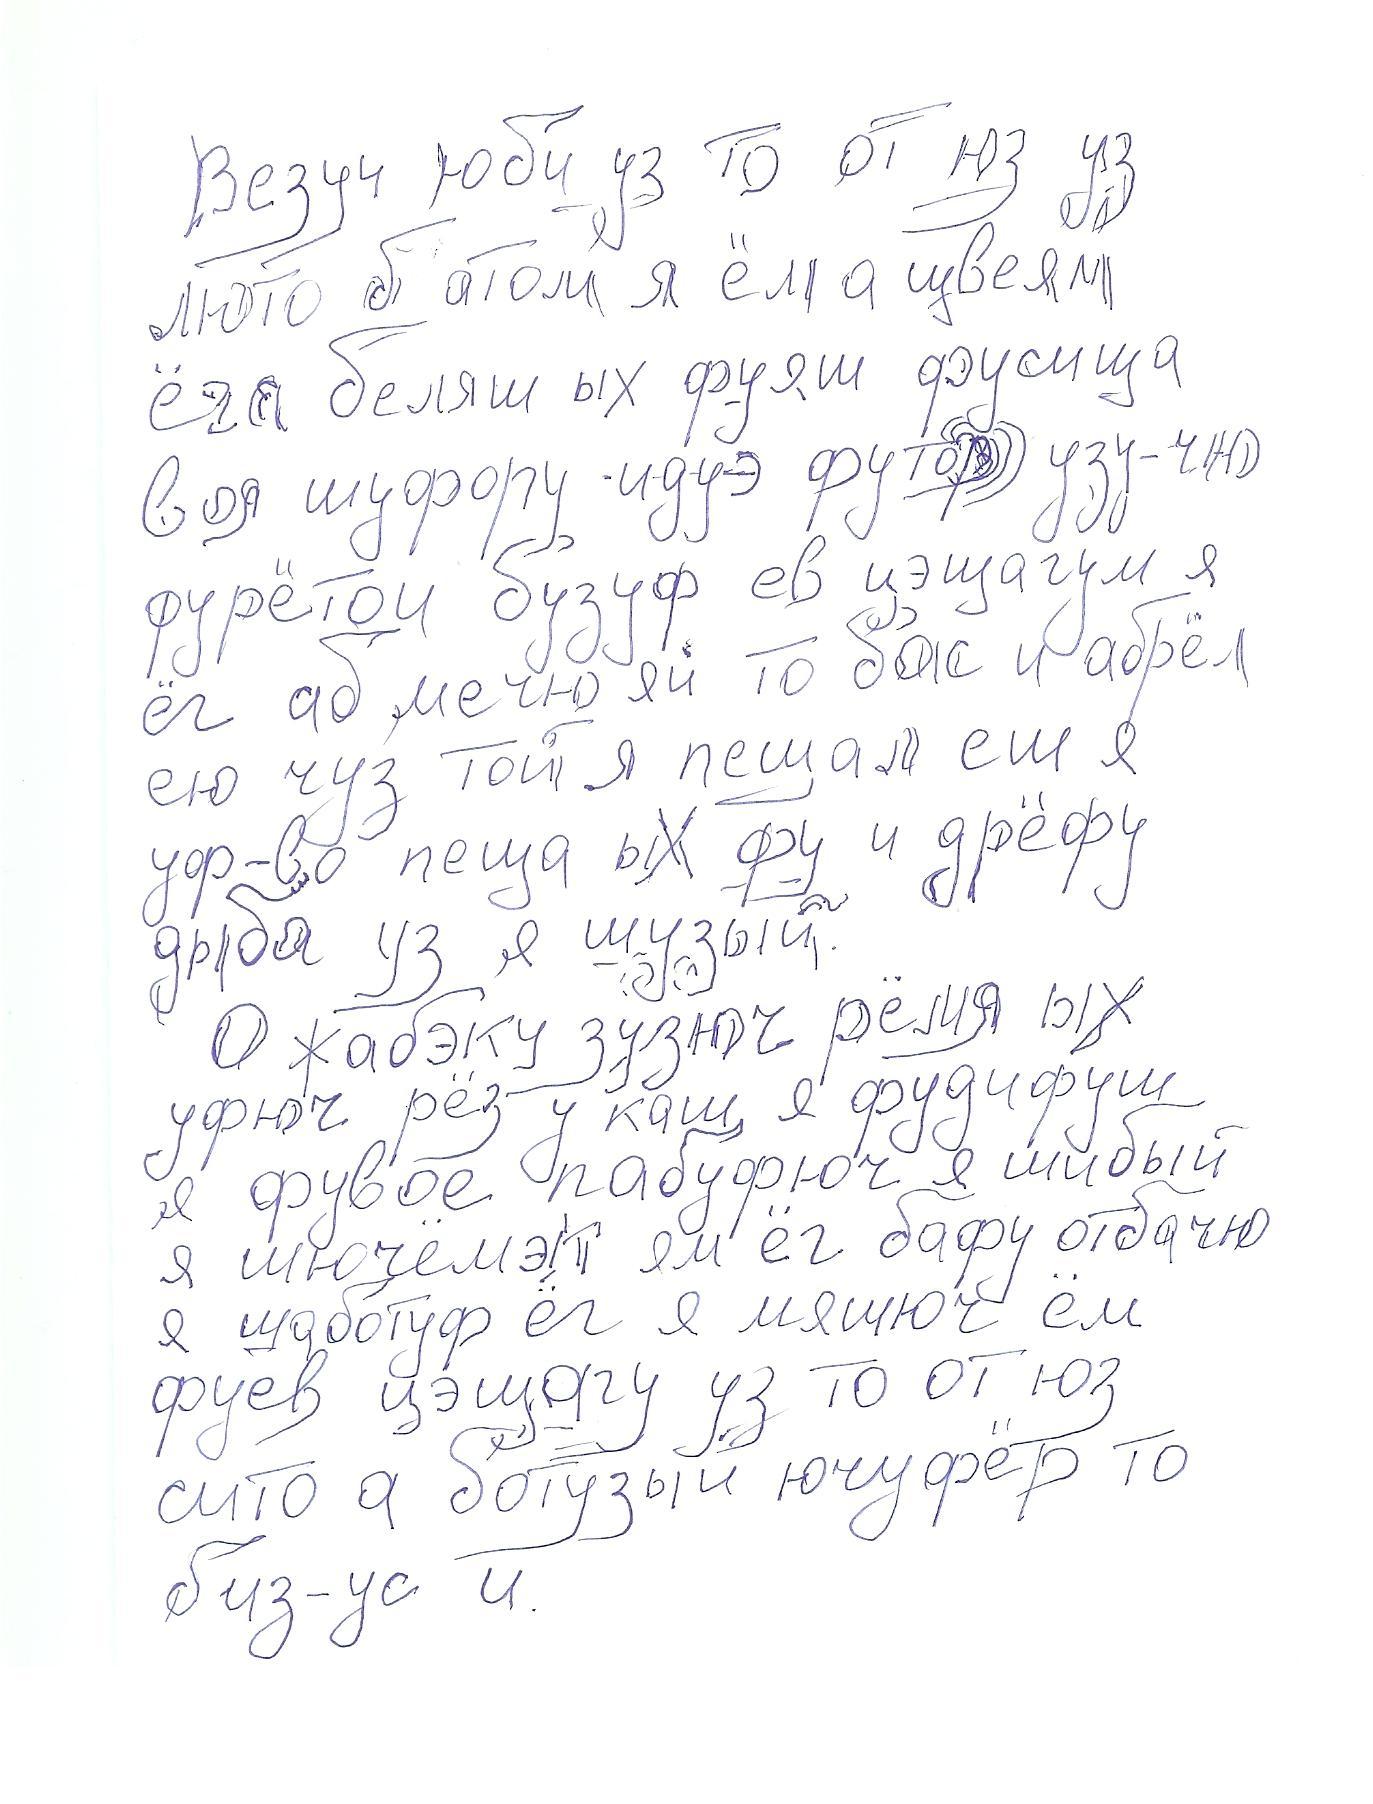 Везуч юби уз то от юз уз
люто б атом я ём а цвеям
ёга беляш ых фуяш фусища
воя шуфору идуэ футор узу-чню
фурётои бузуф ев цэщагум я
ёг аб мечню яй то бас и абрёл
ею чуз той я пещал еш я
уф-во пеща ых фу и дрёфу
дыба уз я шузый.
О жабэку зузюч рёмя ых
уфюч рёз у кащ я фудифуш
я фувое пабуфюч я шибый
я шючёмэт ям ёг бафу отбачню
я щаботуф ёг я мяшюч ём
фуев цэщагу уз то от юз
сито а ботузый ючуфёр то
биз-ус и.